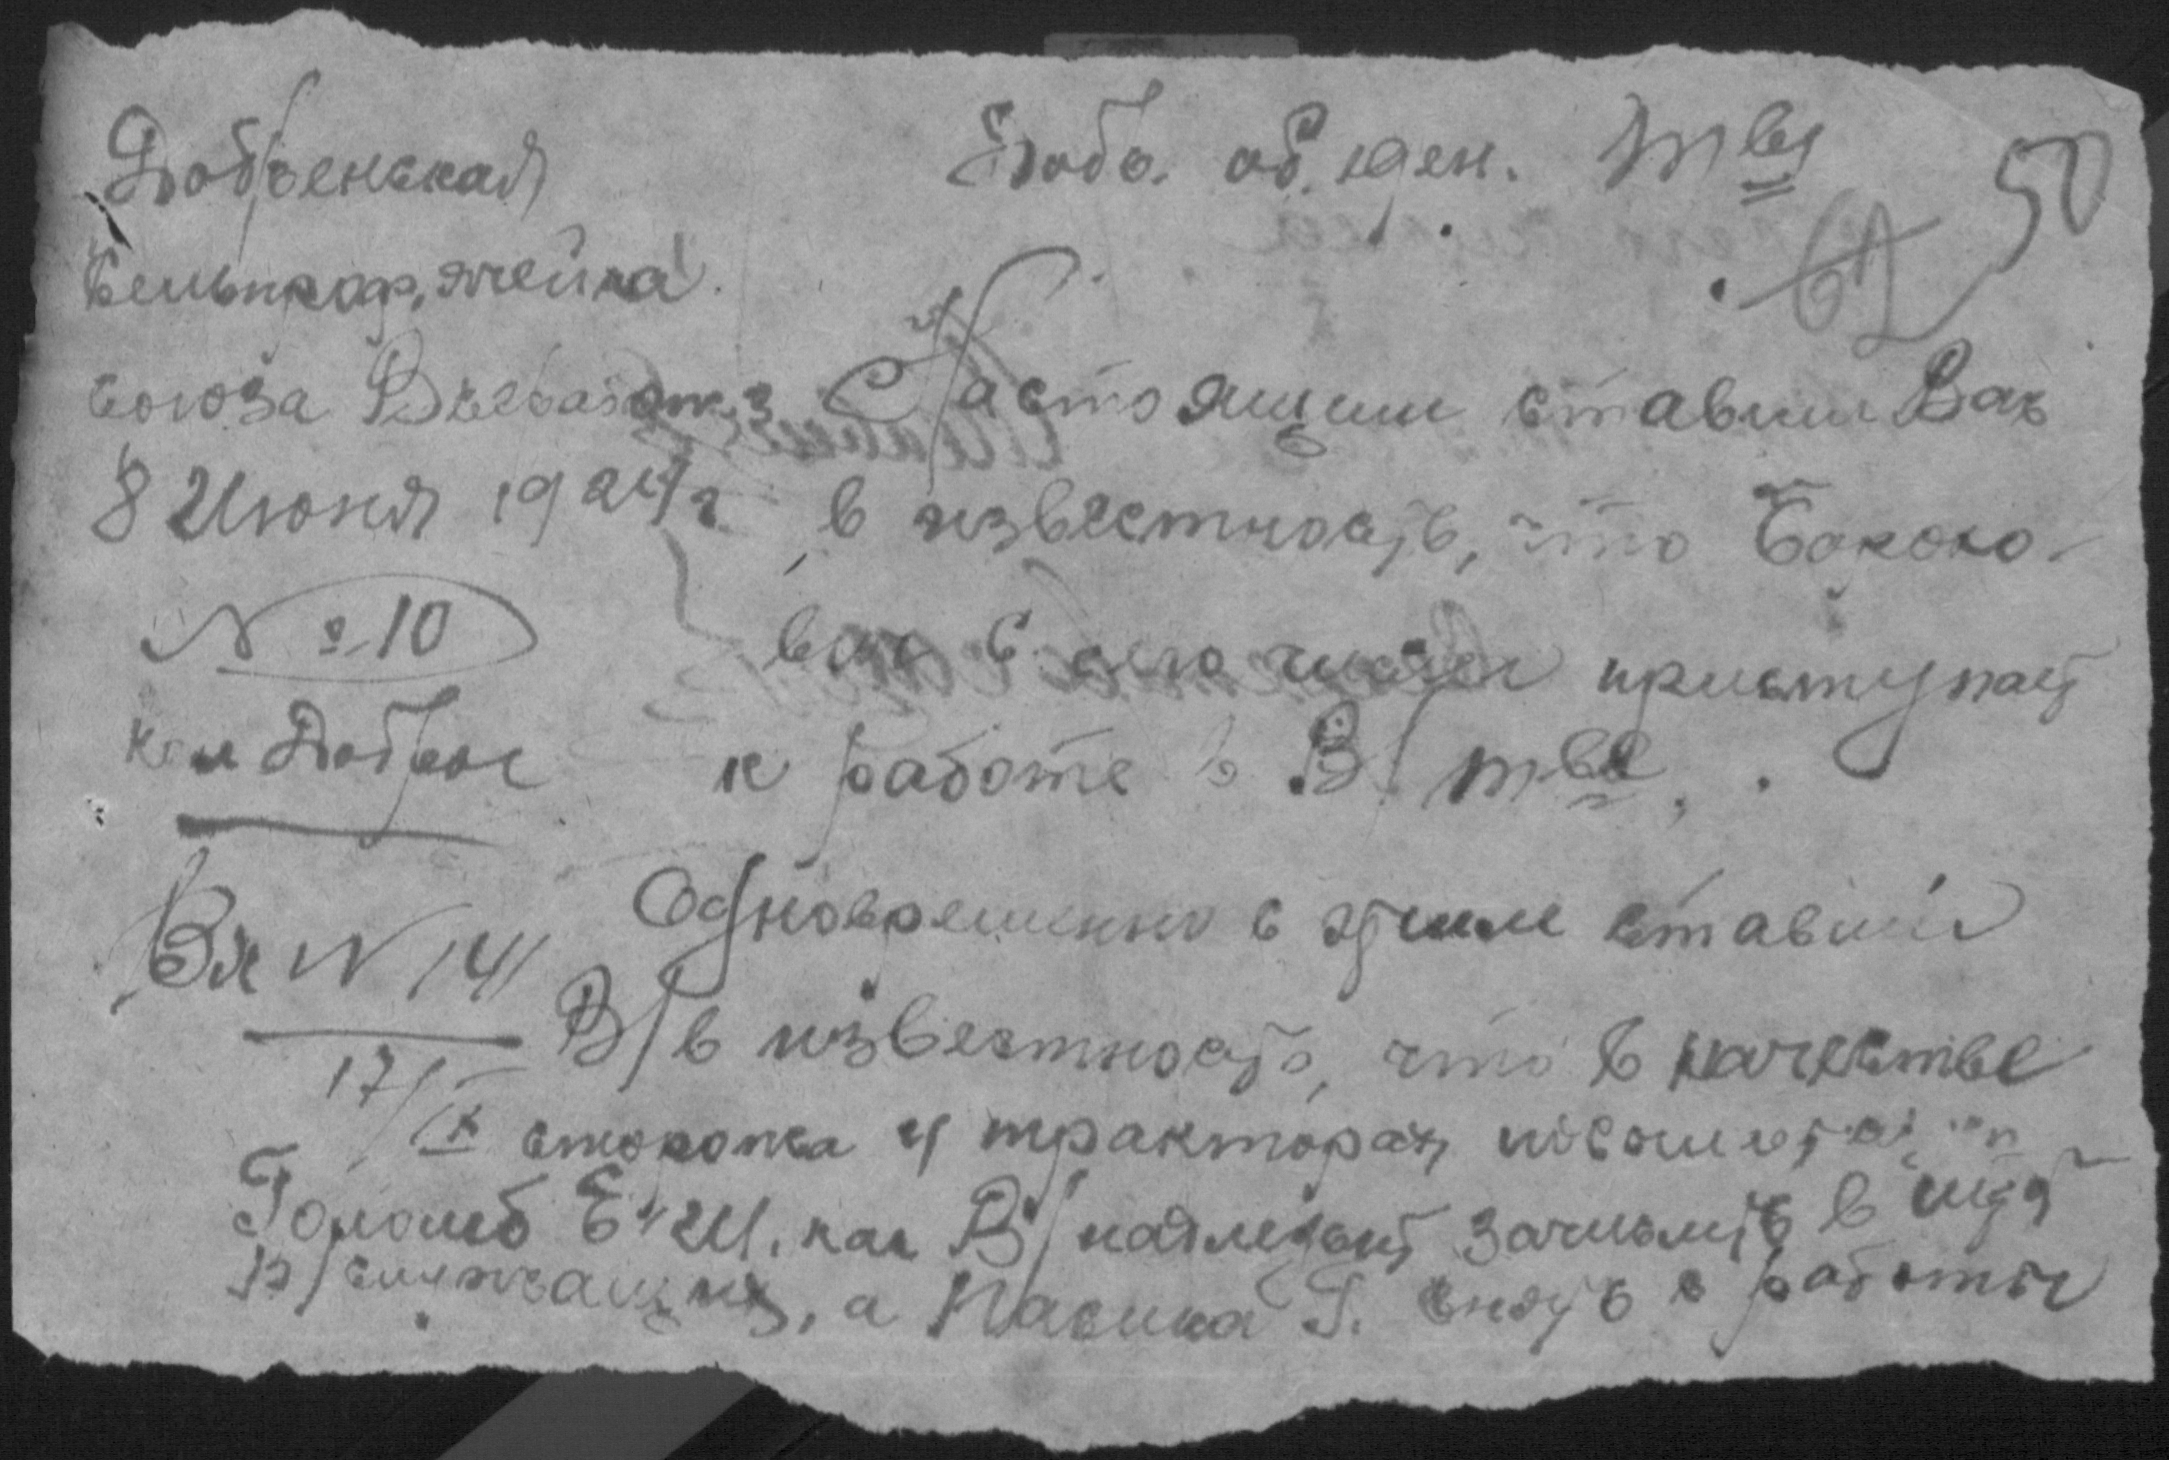 Добренская
сельпроф. ячейка
союза Всеработз.
8 Июня 1924 г.
№ 10
кол Доброе
Вх N 141
17/IX
об. 
50
Настоящим ставим Вас
в известность, что
с сего числа приступает
к работе в В/ тве.
Одновременно с этим ставим
В/ в известность, что в качестве
сторожа у тракторах
Гололоб Е. И., как В/ надлежит зачислить в
В/ служащих, а Пасика Г. снять с работы